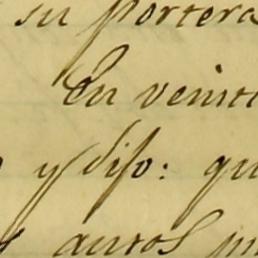 su portera
En veinti
y dijo: qu
autos pu